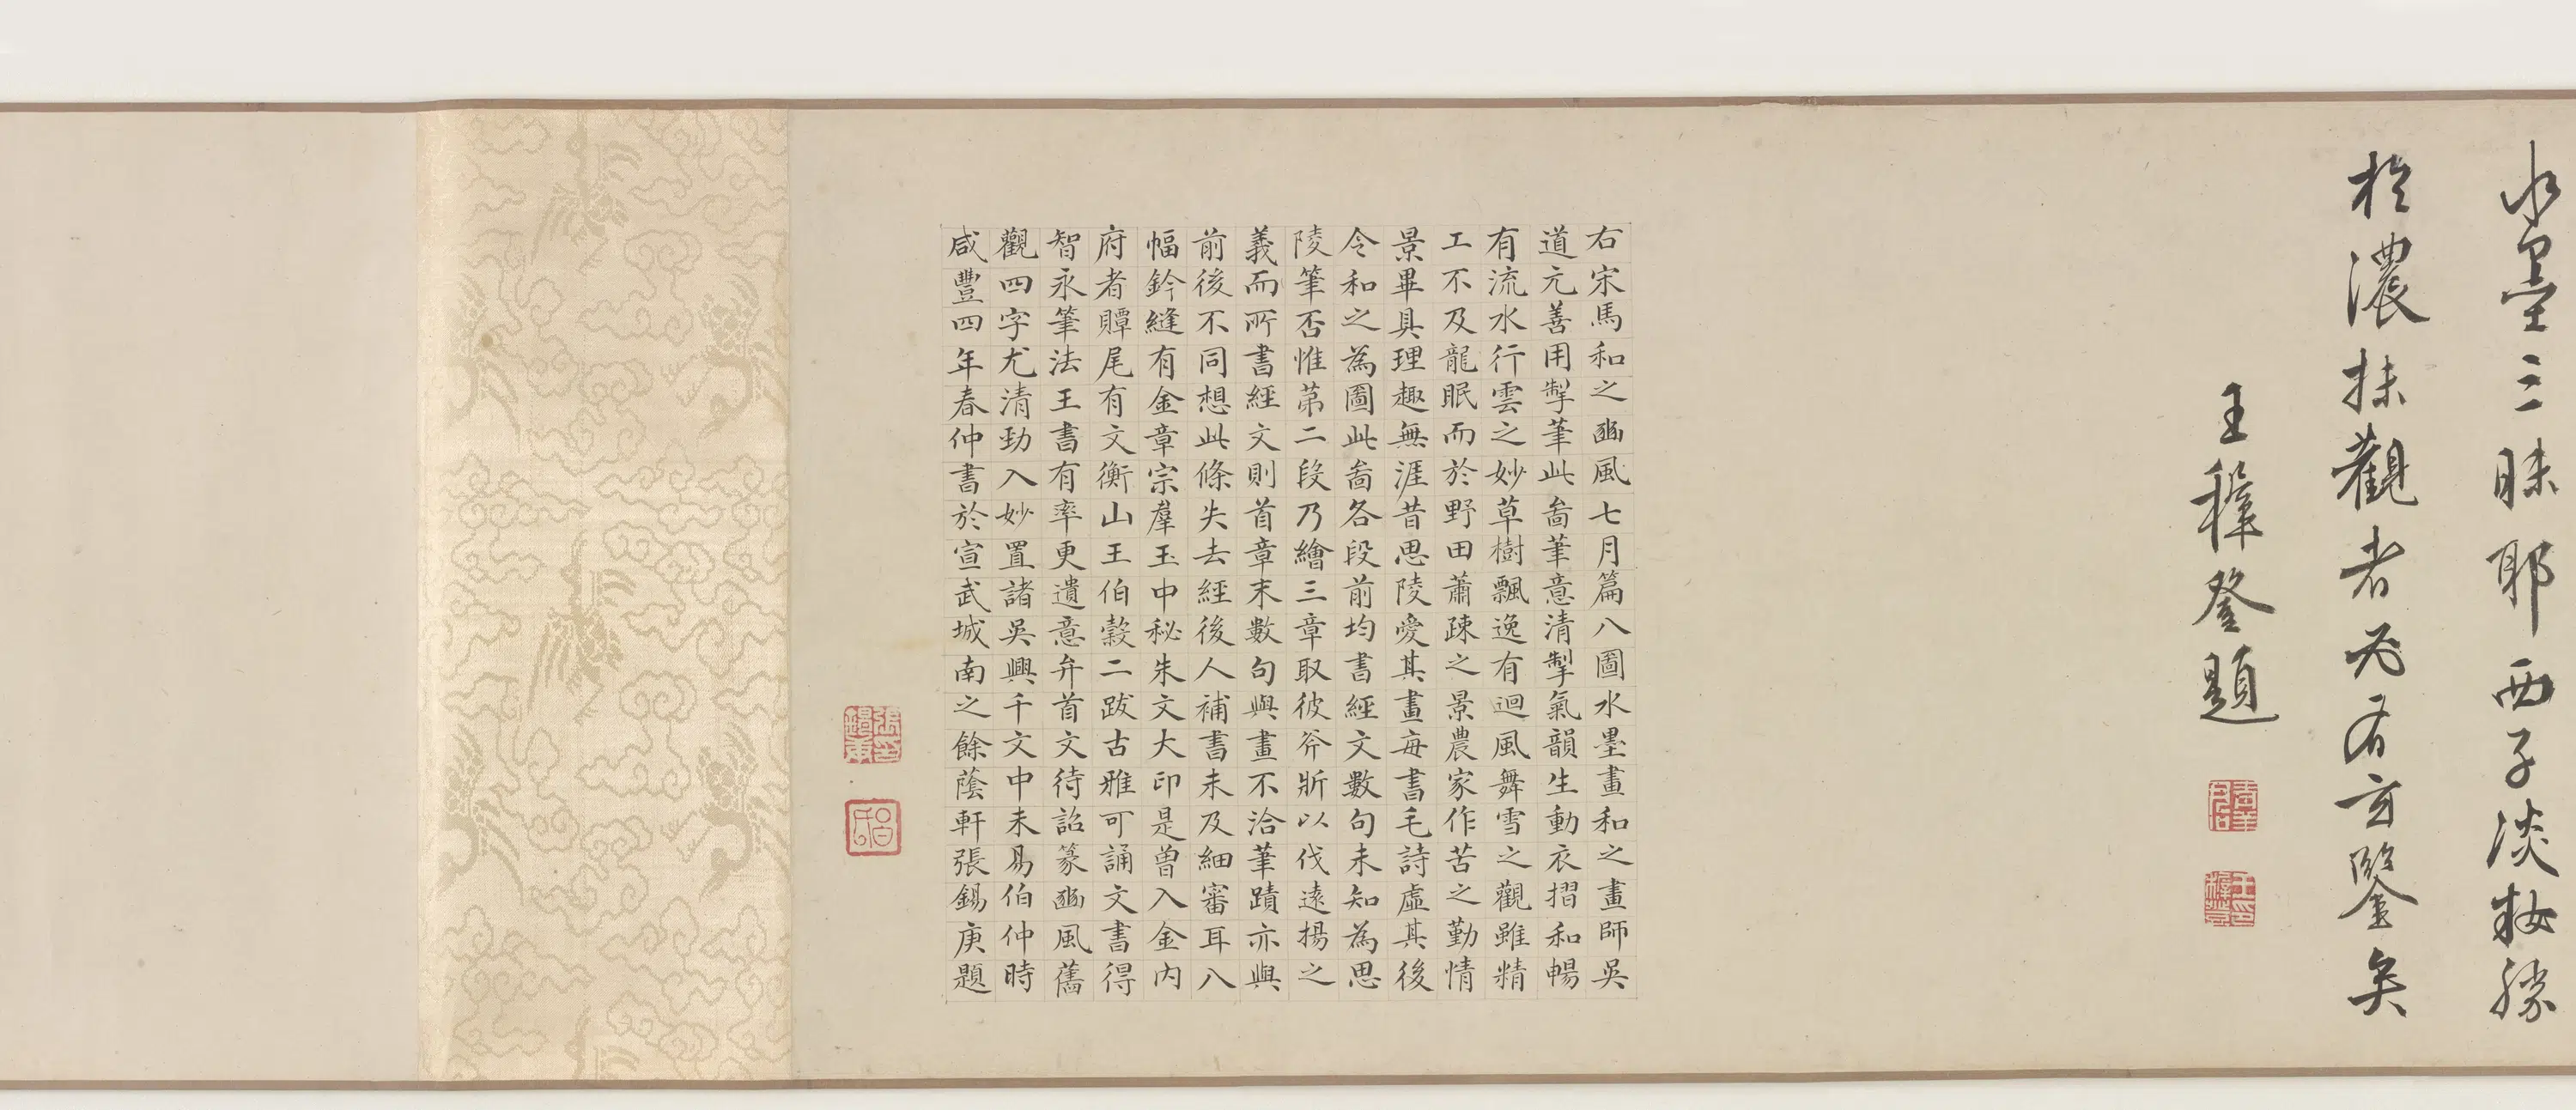 水墨三昧耶西子淡妝勝
於濃抹觀者必有玄鑒矣
王穉登題
右宋馬和之豳風七月篇八圖水墨畫和之畫師吳
道元善用掣筆此啚筆意清掣氣韻生動衣摺和暢
有流水行雲之妙草樹飄逸有迴風舞雪之觀雖精
工不及龍眠而於野田蕭疎之景農家作苦之勤情
景畢具理趣無涯昔思陵愛其畫每書毛詩虛其後
令和之為圖此啚各段前均書經文數句未知為思
陵筆否惟苐二段乃繪三章取彼斧斨以伐遠揚之
義而所書經文則首章末數句與畫不洽筆蹟亦與
前後不同想此條失去經後人補書未及細審耳八
幅鈐縫有金章宗羣玉中秘朱文大印是曾入金內
府者贉尾有文衡山王伯穀二跋古雅可誦文書得
智永筆法王書有率更遺意弁首文待詔篆豳風舊
觀四字尤清勁入妙置諸吳興千文中未易伯仲時
咸豐四年春仲書於宣武城南之餘蔭軒張錫庚題